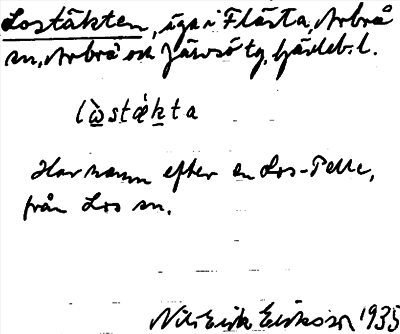 Lostäkten, äga i Flästa, Arbrå
sn, Arbrå och Järvsö tg, Gävleb. l.
lo̱̊̀stǽḵta
Har namn efter en Los-Pelle,
från Los sn.
Nils Erik Eriksson 1935